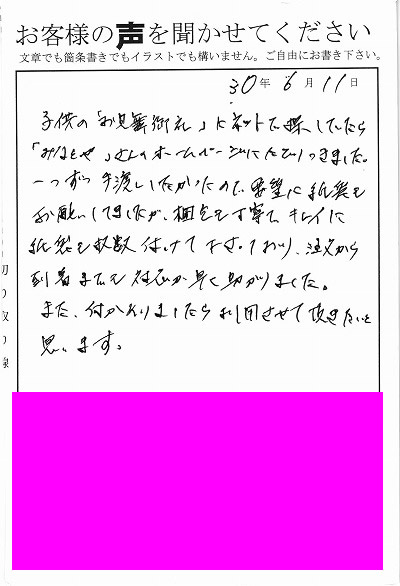 お客様の声を聞かせてください
文章でも箇条書きでもイラストでも構いません。ご自由にお書き下さい。
30年 6月 11日
子供の「お見舞御礼」にネットで探していたら
「みはとや」さんのホームページにたどりつきました。
一つずつ手渡ししたかったので、希望に紙袋を
お願いしてましたが、梱包も丁寧で、キレイに
紙袋も枚数付けて下さっており、注文から
到着までも対応が早く助かりました。
また、何かありましたら利用させて頂きたいと
思います。
切り取り線